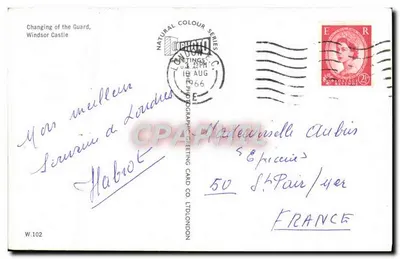 Changing of the Guard,
Windsor Castle
NATURAL COLOUR SERIES
PHOTO
GREETING CARD CO. LTD LONDON
LONDON
AUG
1966
E R
2½d
Mon meilleur
Souvenir de Londres
Habrot
Mademoiselle Aubin
"Epicerie"
50 St Pair s/mer
FRANCE
W.102
Delcampe